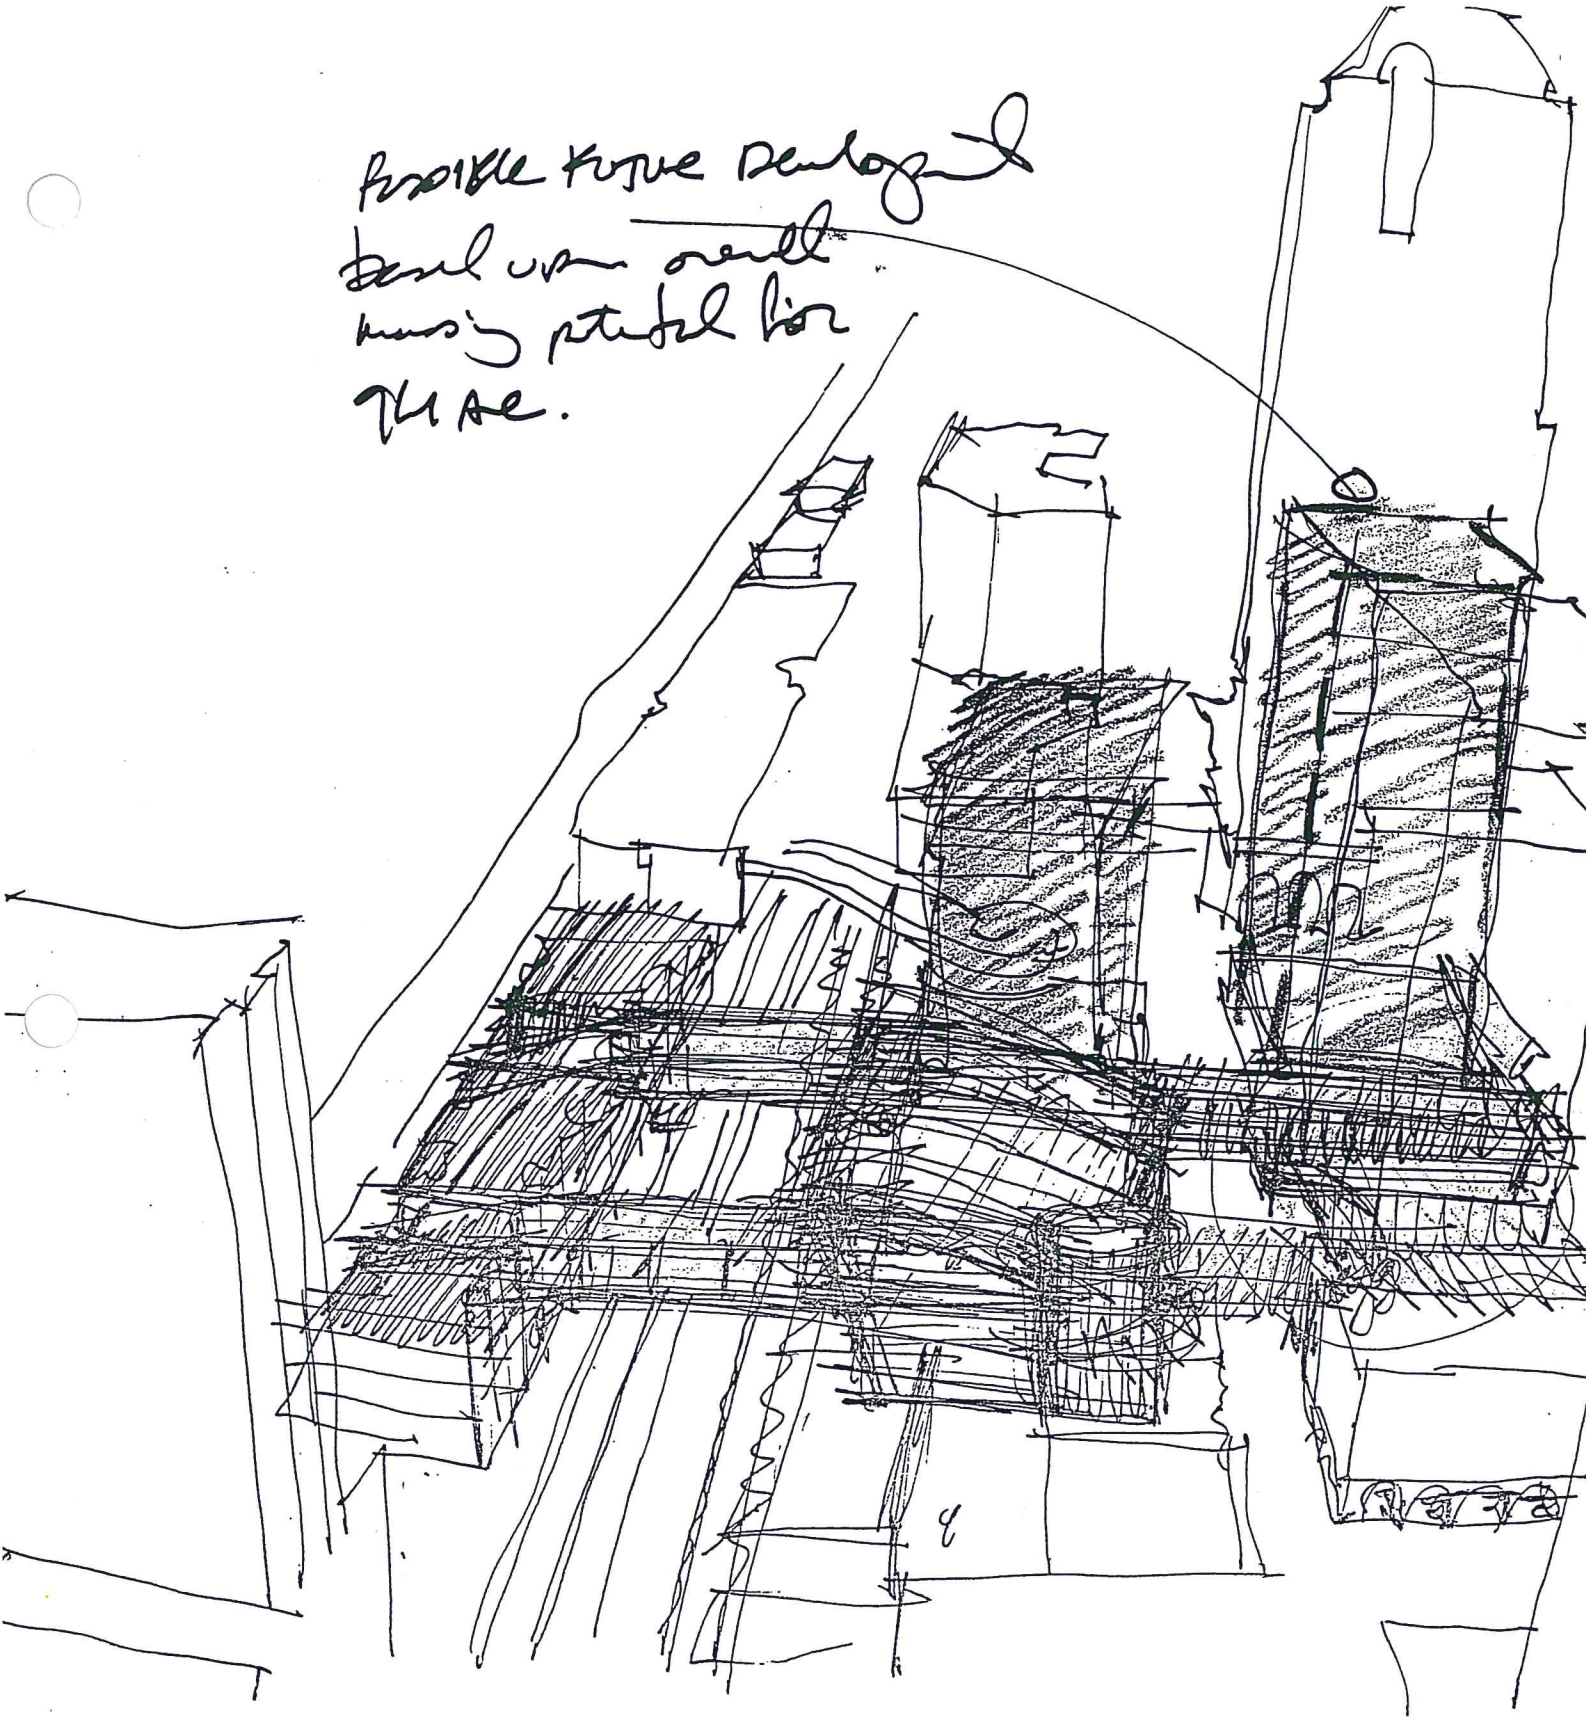 Possible Future Development
based upon overall
massing potential for
9th Ave.